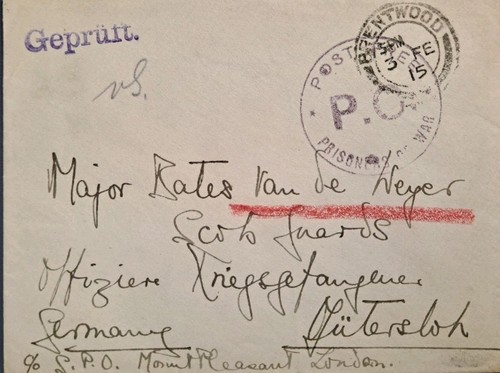 Geprüft.
BRENTWOOD
5 PM
3 FE
15
POST FREE
P.C.
PRISONERS OF WAR
Major Bates Van de Weyer
Scots Guards
Offiziere Kriegsgefangener
Germany Gütersloh
c/o G.P.O. Mount Pleasant London.